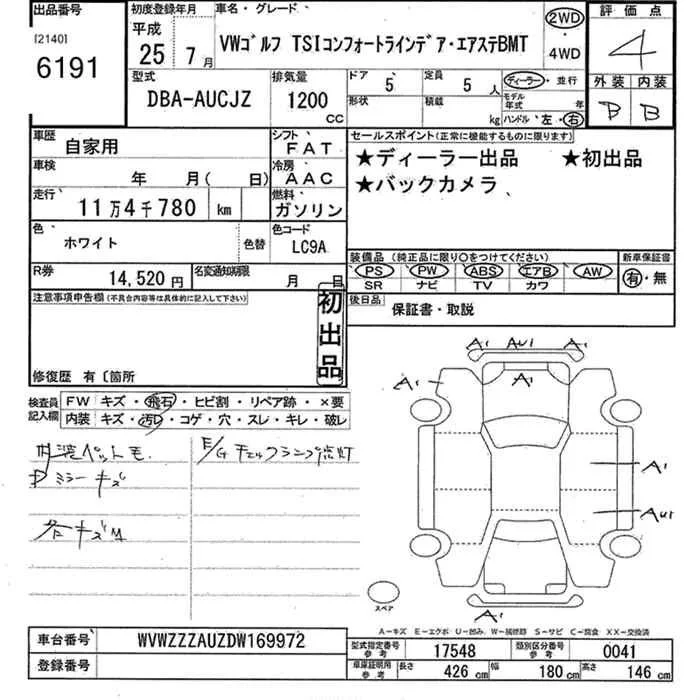 出品番号
[2140]
6191
初度登録年月
平成
25 年 7 月
車名・グレード
VWゴルフ TSIコンフォートラインデア・エアステBMT
2WD
・
4WD
評価点
4
型式
DBA-AUCJZ
排気量
1200
CC
ドア 5
定員 5 人
形状
積載 kg
ディーラー・並行
モデル年式 年
ハンドル・左・右
外装 内装
B B
車歴
自家用
シフト
FAT
車検
年 月( 日)
冷房
AAC
走行
11万4千780 km
燃料
ガソリン
色
ホワイト
色替
色コード
LC9A
R券
14,520円
名変通知期限
月 日
セールスポイント(正常に機能するものに限ります)
★ディーラー出品 ★初出品
★バックカメラ
装備品 (純正品に限り○をつけてください)
PS PW ABS エアB AW
SR ナビ TV カワ
新車保証書
有・無
後日品
保証書・取説
注意事項申告欄(不具合内容等は具体的に記入して下さい)
初出品
修復歴 有〔箇所
検査員
記入欄
FW キズ・飛石・ヒビ割・リペア跡・×要
内装 キズ・汚レ・コゲ・穴・スレ・キレ・破レ
内装ペット毛
E/Gチェックランプ点灯
ミラーキズ
各キズM
A1 AU1 A1
A1
A1
A1
AU1
A1
スペア
A-キズ E-エクボ U-凹み W-補修跡 S-サビ C-腐食 XX-交換済
車台番号
WVWZZZAUZDW169972
登録番号
型式指定番号
参考
17548
類別区分番号
参考
0041
車庫証明用
参考
長さ 426 cm
幅 180 cm
高さ 146 cm